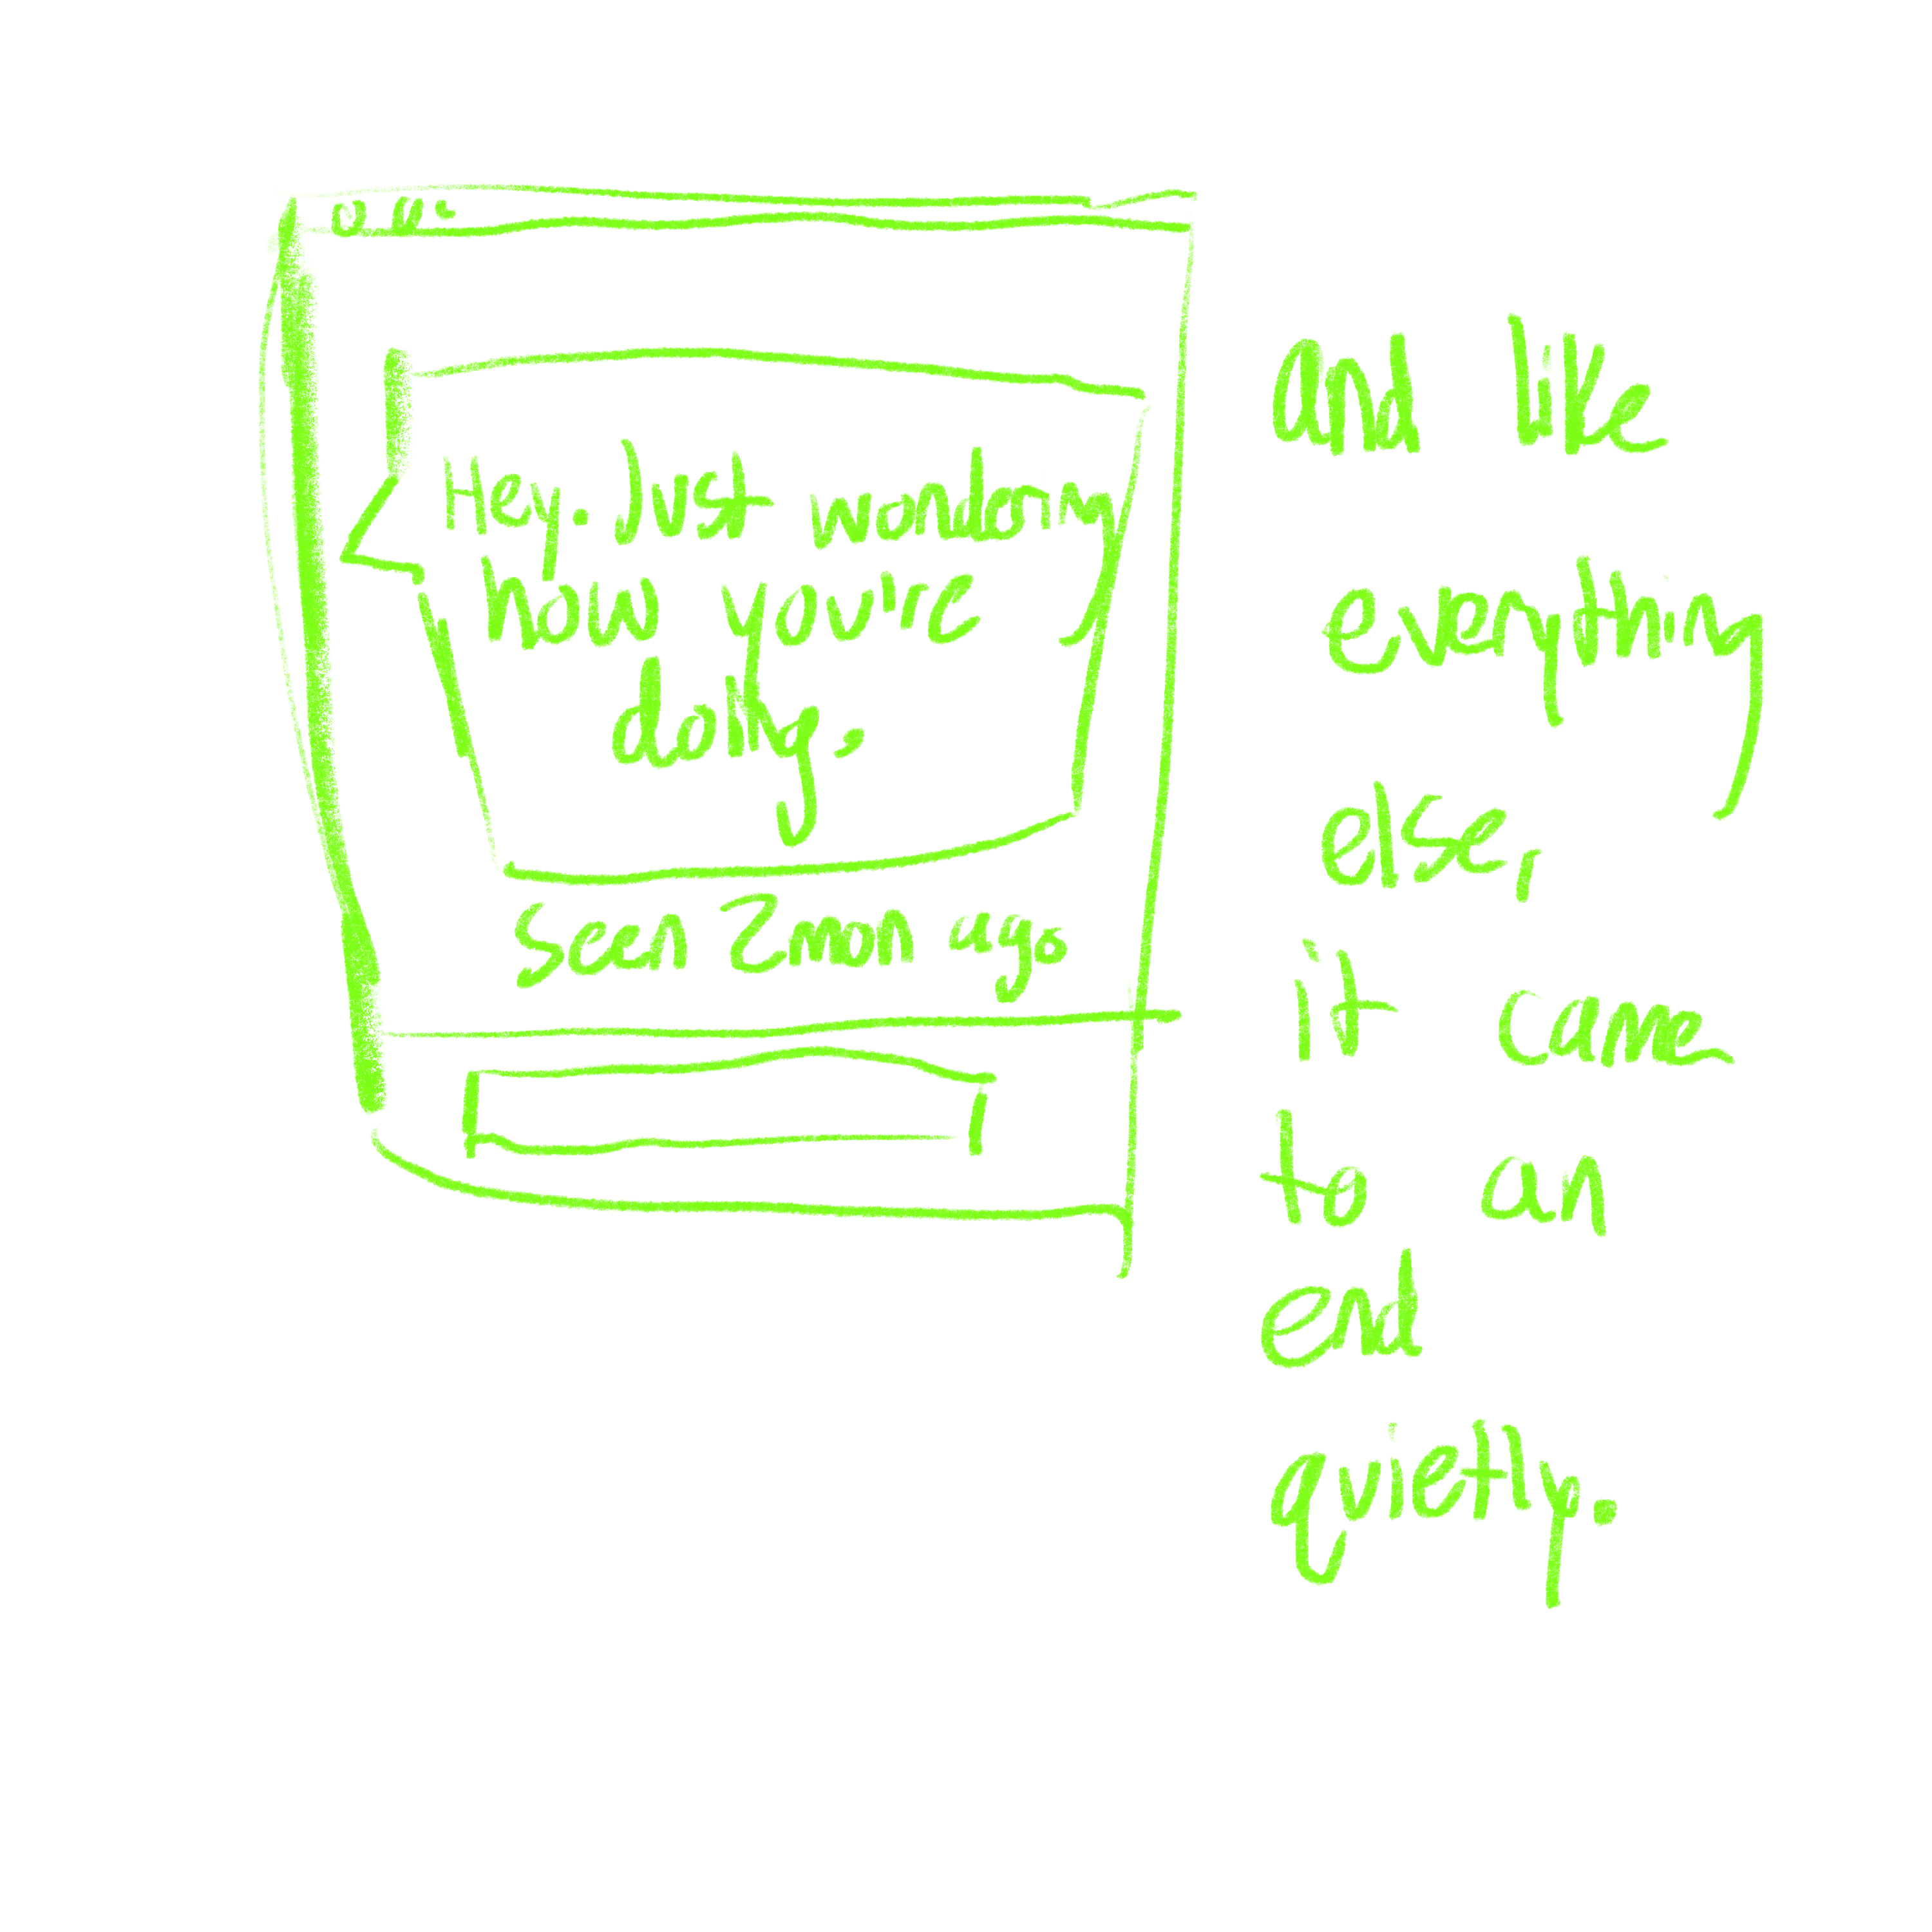 Hey. Just wondering
how you're
doing.
Seen 2mon ago
and like
everything
else,
it came
to an
end
quietly.